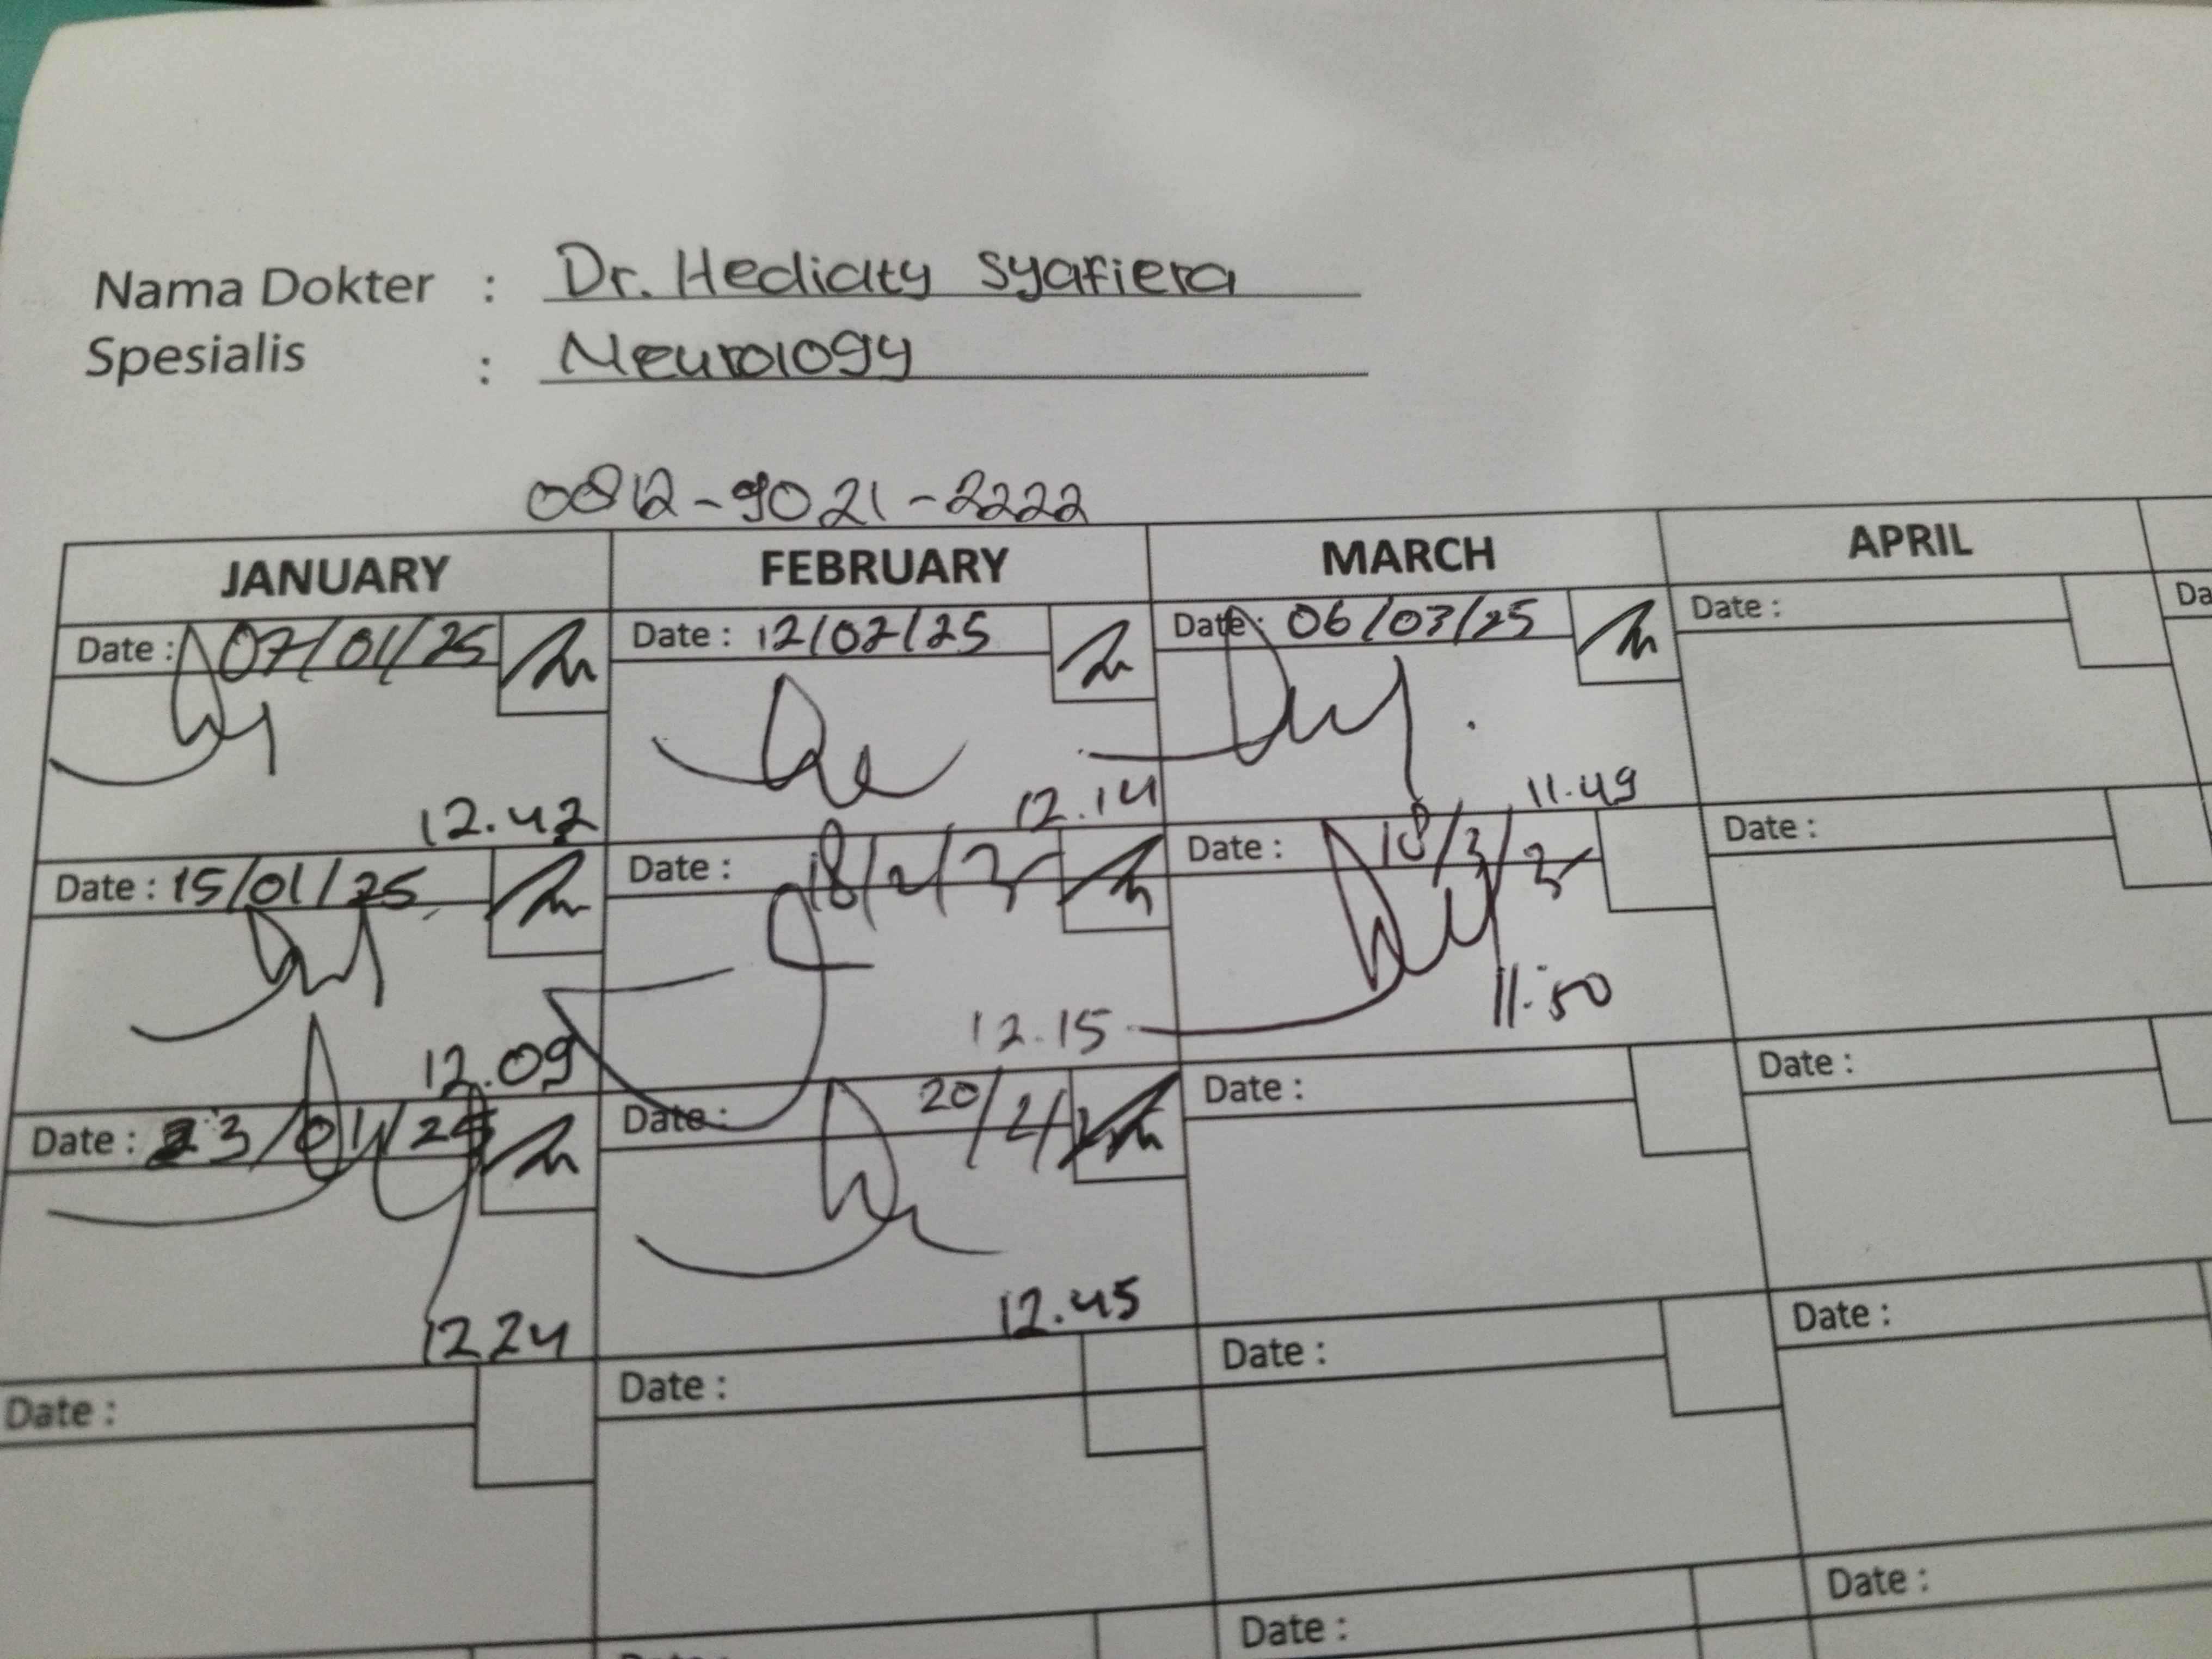 Nama Dokter : Dr. Hediaty Syafiera
Spesialis : Neurology
0812-9021-2222
JANUARY FEBRUARY MARCH APRIL
Date : 07/01/25 Date : 12/02/25 Date : 06/03/25 Date : Da
12.42 12.14 11.49
Date : 15/01/25 Date : 18/2/25 Date : 18/3/25 Date :
12.09 12.15 11.50
Date : 23/01/25 Date : 20/2/ Date : Date :
12 24 12.45
Date : Date : Date : Date :
Date : Date : Date :